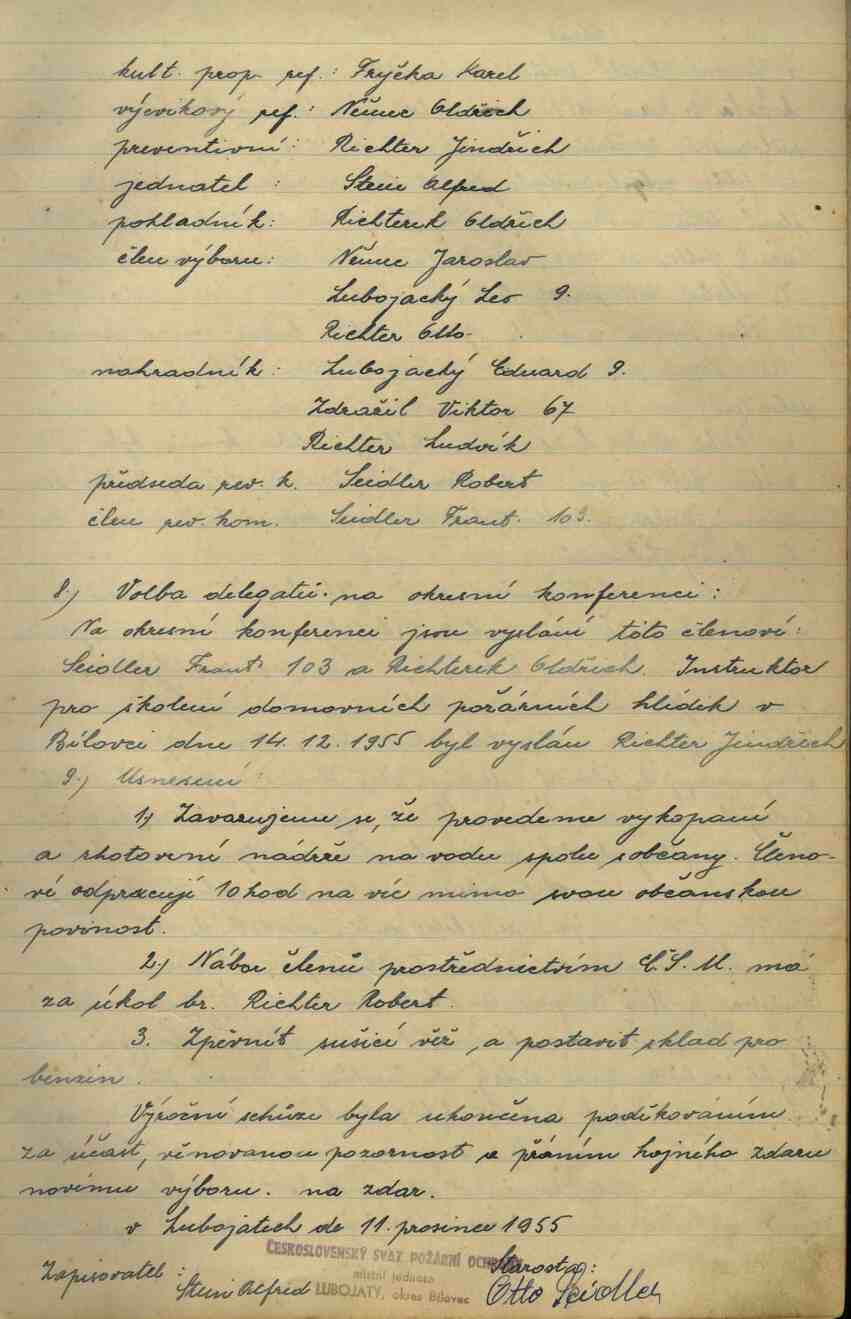 kult. prop. ref.: Fryčka Karel
výcvikový ref.: Němec Oldřich
preventivní: Richter Jindřich
jednatel : Stein Alfred
pokladník: Richterek Oldřich
člen výboru: Němec Jaroslav
Lubojacký Leo 9.
Richter Otto
nahradník: Lubojacký Eduard 9.
Zdražil Viktor 67
Richter Ludvík
předseda rev. k. Seidler Robert
člen rev. kom. Seidler Frant. 103.
8.) Volba delegatů na okresní konferenci:
Na okresní konferenci jsou vysláni tito členové:
Seidler Frant. 103 a Richterek Oldřich. Instruktor
pro školení domovních požárních hlídek v
Bílovci dne 14. 12. 1955 byl vyslán Richter Jindřich
9.) Usnesení:
1) Zavazujeme se, že provedeme vykopaní
a zhotovení nádrže na vodu spolu s občany. Členo-
vé odpracují 10 hod na víc mimo svou občanskou
povinost.
2.) Nábor členů prostřednictvím Č.S.M. má
za úkol br. Richter Robert.
3. Zpěvnit sušicí věž, a postavit sklad pro
benzin.
Výroční schůze byla ukončena poděkováním
za účast, věnovanou pozornost a přáním hojného zdaru
novému výboru. na zdar.
v Lubojatech dne 11. prosince 1955
ČESKOSLOVENSKÝ SVAZ POŽÁRNÍ OCHRANY
místní jednota
LUBOJATY, okres Bílovec
Zapisovatel: Starosta:
Stein Alfred Otto Seidler